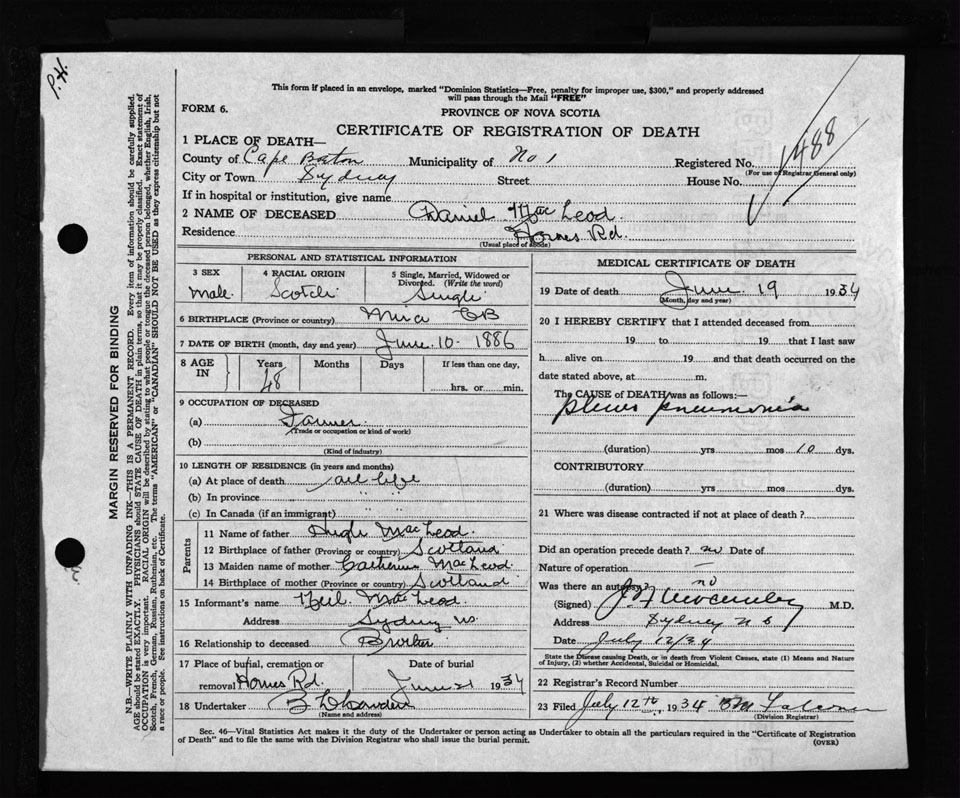 P.H.
This form if placed in an envelope, marked "Dominion Statistics—Free, penalty for improper use, $300," and properly addressed
will pass through the Mail "FREE"
FORM 6.
PROVINCE OF NOVA SCOTIA
CERTIFICATE OF REGISTRATION OF DEATH
1488
1 PLACE OF DEATH—
County of Cape Breton Municipality of No 1 Registered No.
(For use of Registrar General only)
City or Town Sydney Street House No.
If in hospital or institution, give name
2 NAME OF DECEASED Daniel MacLeod.
Residence Hornes Rd.
(Usual place of abode)
PERSONAL AND STATISTICAL INFORMATION
3 SEX
Male.
4 RACIAL ORIGIN
Scotch
5 Single, Married, Widowed or
Divorced. (Write the word)
Single
6 BIRTHPLACE (Province or country) Mira CB
7 DATE OF BIRTH (month, day and year) June 10 1886
8 AGE IN
Years Months Days If less than one day,
48 hrs. or min.
9 OCCUPATION OF DECEASED
(a) Farmer
(Trade or occupation or kind of work)
(b)
(Kind of industry)
10 LENGTH OF RESIDENCE (in years and months)
(a) At place of death all life
(b) In province
(c) In Canada (if an immigrant)
Parents
11 Name of father Hugh MacLeod.
12 Birthplace of father (Province or country) Scotland
13 Maiden name of mother Catherine MacLeod
14 Birthplace of mother (Province or country) Scotland
15 Informant's name Neil MacLeod.
Address Sydney NS.
16 Relationship to deceased Brother
17 Place of burial, cremation or Date of burial
removal Hornes Rd. June 21 1934
18 Undertaker
(Name and address)
MEDICAL CERTIFICATE OF DEATH
19 Date of death June 19 1934
(Month, day and year)
20 I HEREBY CERTIFY that I attended deceased from
19 to 19 that I last saw
h alive on 19 and that death occurred on the
date stated above, at m.
The CAUSE of DEATH was as follows:
pleuro pneumonia
(duration) yrs mos 10 dys.
CONTRIBUTORY
(duration) yrs mos dys.
21 Where was disease contracted if not at place of death?
Did an operation precede death? no Date of
Nature of operation —
Was there an autopsy? no
(Signed) M.D.
Address Sydney N S
Date July 12/34
State the Disease causing Death, or in death from Violent Causes, state (1) Means and Nature
of Injury, (2) whether Accidental, Suicidal or Homicidal.
22 Registrar's Record Number
23 Filed July 12th, 1934
(Division Registrar)
Sec. 46—Vital Statistics Act makes it the duty of the Undertaker or person acting as Undertaker to obtain all the particulars required in the "Certificate of Registration
of Death" and to file the same with the Division Registrar who shall issue the burial permit.
(OVER)
MARGIN RESERVED FOR BINDING
N.B.—WRITE PLAINLY WITH UNFADING INK—THIS IS A PERMANENT RECORD. Every item of information should be carefully supplied.
AGE should be stated EXACTLY. PHYSICIANS should STATE CAUSE OF DEATH in plain terms, so that it may be properly classified. Exact statement of
OCCUPATION is very important. RACIAL ORIGIN will be described by stating to what people or tongue the deceased person belonged, whether English, Irish,
Scotch, French, German, Russian, Ruthenian, etc. The terms "AMERICAN" or "CANADIAN" SHOULD NOT BE USED as they express citizenship but not
a race or people. See instructions on back of Certificate.